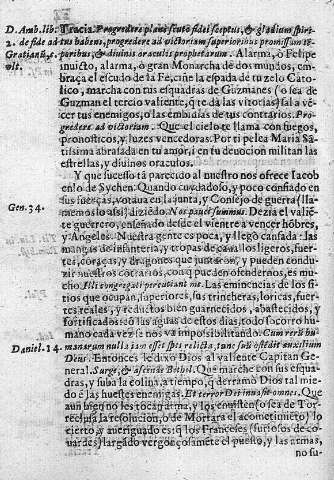 D. Amb. lib. 2. de fide ad Gratianũ, c. vlt.
Tracia. Progredere plane scuto fidei septus, & gladium spiri-
tus habens, progredere ad victoriam superioribus promissam tẽ-
poribus, & diuinis oraculis prophetatam. Alarma, ò Felipe
inuicto, alarma, ò gran Monarcha de dos mundos, em-
braça el escudo de la Fe, ciñe la espada de tu zelo Cató-
lico, marcha con tus esquadras de Guzmanes (ò sea de
Guzman el tercio valiente, q̃ te dà las vitorias) sal a vẽ-
cer tus enemigos, o las embidias de tus contrarios. Pro-
gredere ad victoriam. Que el cielo te llama con fuegos,
pronosticos, y luzes vencedoras. Por ti pelea Maria Sã-
tissima abrasada en tu amor, en tu deuocion militan las
estrellas, y diuinos oraculos.
Y que sucesso tã parecido al nuestro nos ofrece Iacob
en lo de Sychen! Quando cuydadoso, y poco confiado en
sus fuerças, votaua en la junta, y Consejo de guerra (lla-
Gen. 34.
memoslo assi) diziẽdo. Nos pauci sumus. Dezia el valiẽ-
te guerrero, enseñado desde el vientre a vencer hõbres,
y Angeles. Nuestra gente es poca, y llegò cansada: las
mangas de infanteria, y tropas de cauallos ligeros, fuer-
tes, coraças, y dragones que juntaron, y pueden condu-
zir nuestros cõtrarios, con q̃ pueden ofendernos, es mu-
cho. Illi congregati percutient me. Las eminencias de los si-
tios que ocupan, superiores, sus trincheras, loricas, fuer-
tes reales, y reductos bien guarnecidos, abastecidos, y
fortificados cõ las aguas de estos dias, todo socorro hu-
mano cada vez se nos va impossibilitando. Cum rerũ hu-
Daniel. 14.
manarum nulla iam esset spes relicta, tunc fuit ostẽdit auxilium
Deus. Entonces le dixo Dios al valiente Capitan Ge-
neral. Surge, & ascende Bethel. Que marche con sus esqua-
dras, y suba la colina, a tiempo, q̃ derramò Dios tal mie-
do ẽ las huestes enemigas. Et terror Dei inuasit omnes. Que
aun bien no les tocan arma, y los enuisten (o sea de Tor-
recusa la resolucion, o de Mortara el acometimiẽto) lo
cierto, y aueriguado es: q̃ los Franceses (furiosos de co-
uardes) largãdo vergõçosamẽte el puesto, y las armas,
no fu-